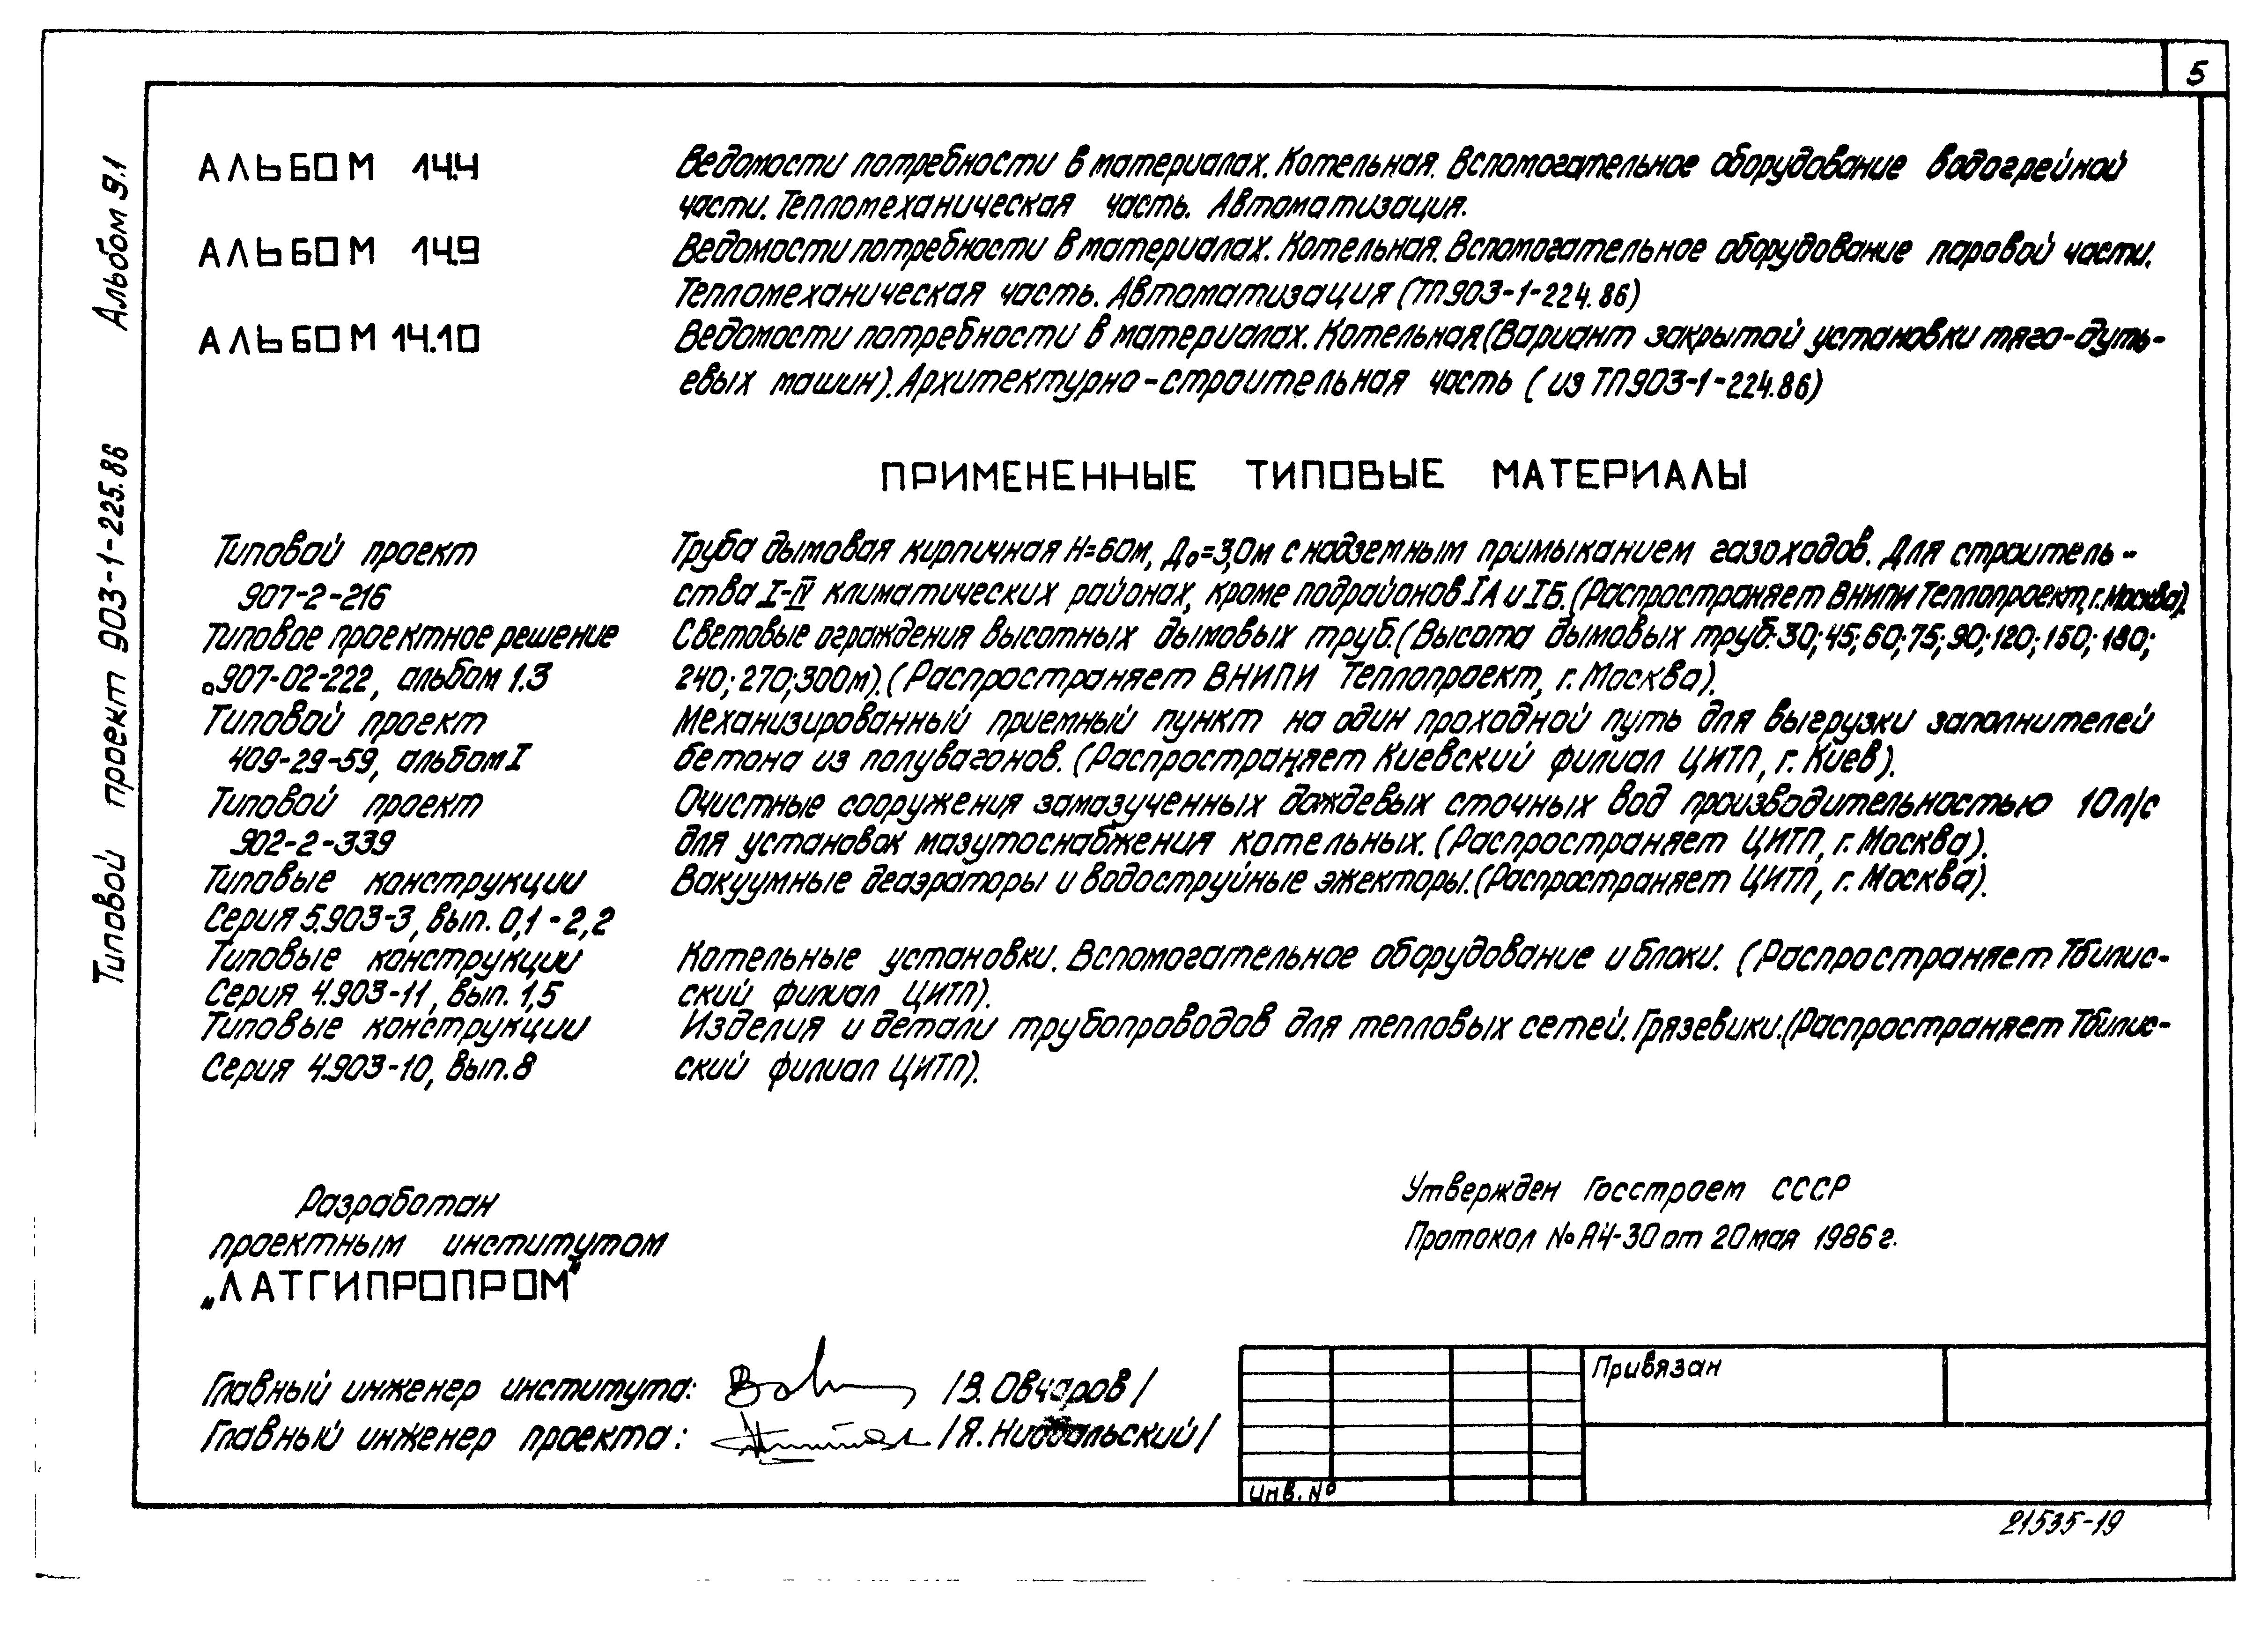 5
Альбом 9.1
Типовой проект 903-1-225.86
АЛЬБОМ 14.4 Ведомости потребности в материалах. Котельная. Вспомогательное оборудование водогрейной
части. Тепломеханическая часть. Автоматизация.
АЛЬБОМ 14.9 Ведомости потребности в материалах. Котельная. Вспомогательное оборудование паровой части.
Тепломеханическая часть. Автоматизация (ТП903-1-224.86)
АЛЬБОМ 14.10 Ведомости потребности в материалах. Котельная (Вариант закрытой установки тяго-дуть-
евых машин). Архитектурно-строительная часть (из ТП903-1-224.86)
ПРИМЕНЕННЫЕ ТИПОВЫЕ МАТЕРИАЛЫ
Типовой проект Труба дымовая кирпичная Н=60м, Д₀=3,0м с надземным примыканием газоходов. Для строитель-
907-2-216 ства I-IV климатических районах, кроме подрайонов IА и IБ. (Распространяет ВНИПИ Теплопроект, г. Москва).
Типовое проектное решение Световые ограждения высотных дымовых труб. (Высота дымовых труб: 30; 45; 60; 75; 90; 120; 150; 180;
907-02-222, альбом 1.3 240; 270; 300м). (Распространяет ВНИПИ Теплопроект, г. Москва).
Типовой проект Механизированный приемный пункт на один проходной путь для выгрузки заполнителей
409-29-59, альбом I бетона из полувагонов. (Распространяет Киевский филиал ЦИТП, г. Киев).
Типовой проект Очистные сооружения замазученных дождевых сточных вод производительностью 10л/с
902-2-339 для установок мазутоснабжения котельных. (Распространяет ЦИТП, г. Москва).
Типовые конструкции Вакуумные деаэраторы и водоструйные эжекторы. (Распространяет ЦИТП, г. Москва).
Серия 5.903-3, вып. 0,1-2,2
Типовые конструкции Котельные установки. Вспомогательное оборудование и блоки. (Распространяет Тбилис-
Серия 4.903-11, вып. 1,5 ский филиал ЦИТП).
Типовые конструкции Изделия и детали трубопроводов для тепловых сетей. Грязевики. (Распространяет Тбилис-
Серия 4.903-10, вып. 8 ский филиал ЦИТП).
Разработан
проектным институтом
„ЛАТГИПРОПРОМ"
Утвержден Госстроем СССР
Протокол № АЧ-30 от 20 мая 1986 г.
Главный инженер института: /В. Овчаров/
Главный инженер проекта: /Я.
Привязан
Инв. №
21535-19